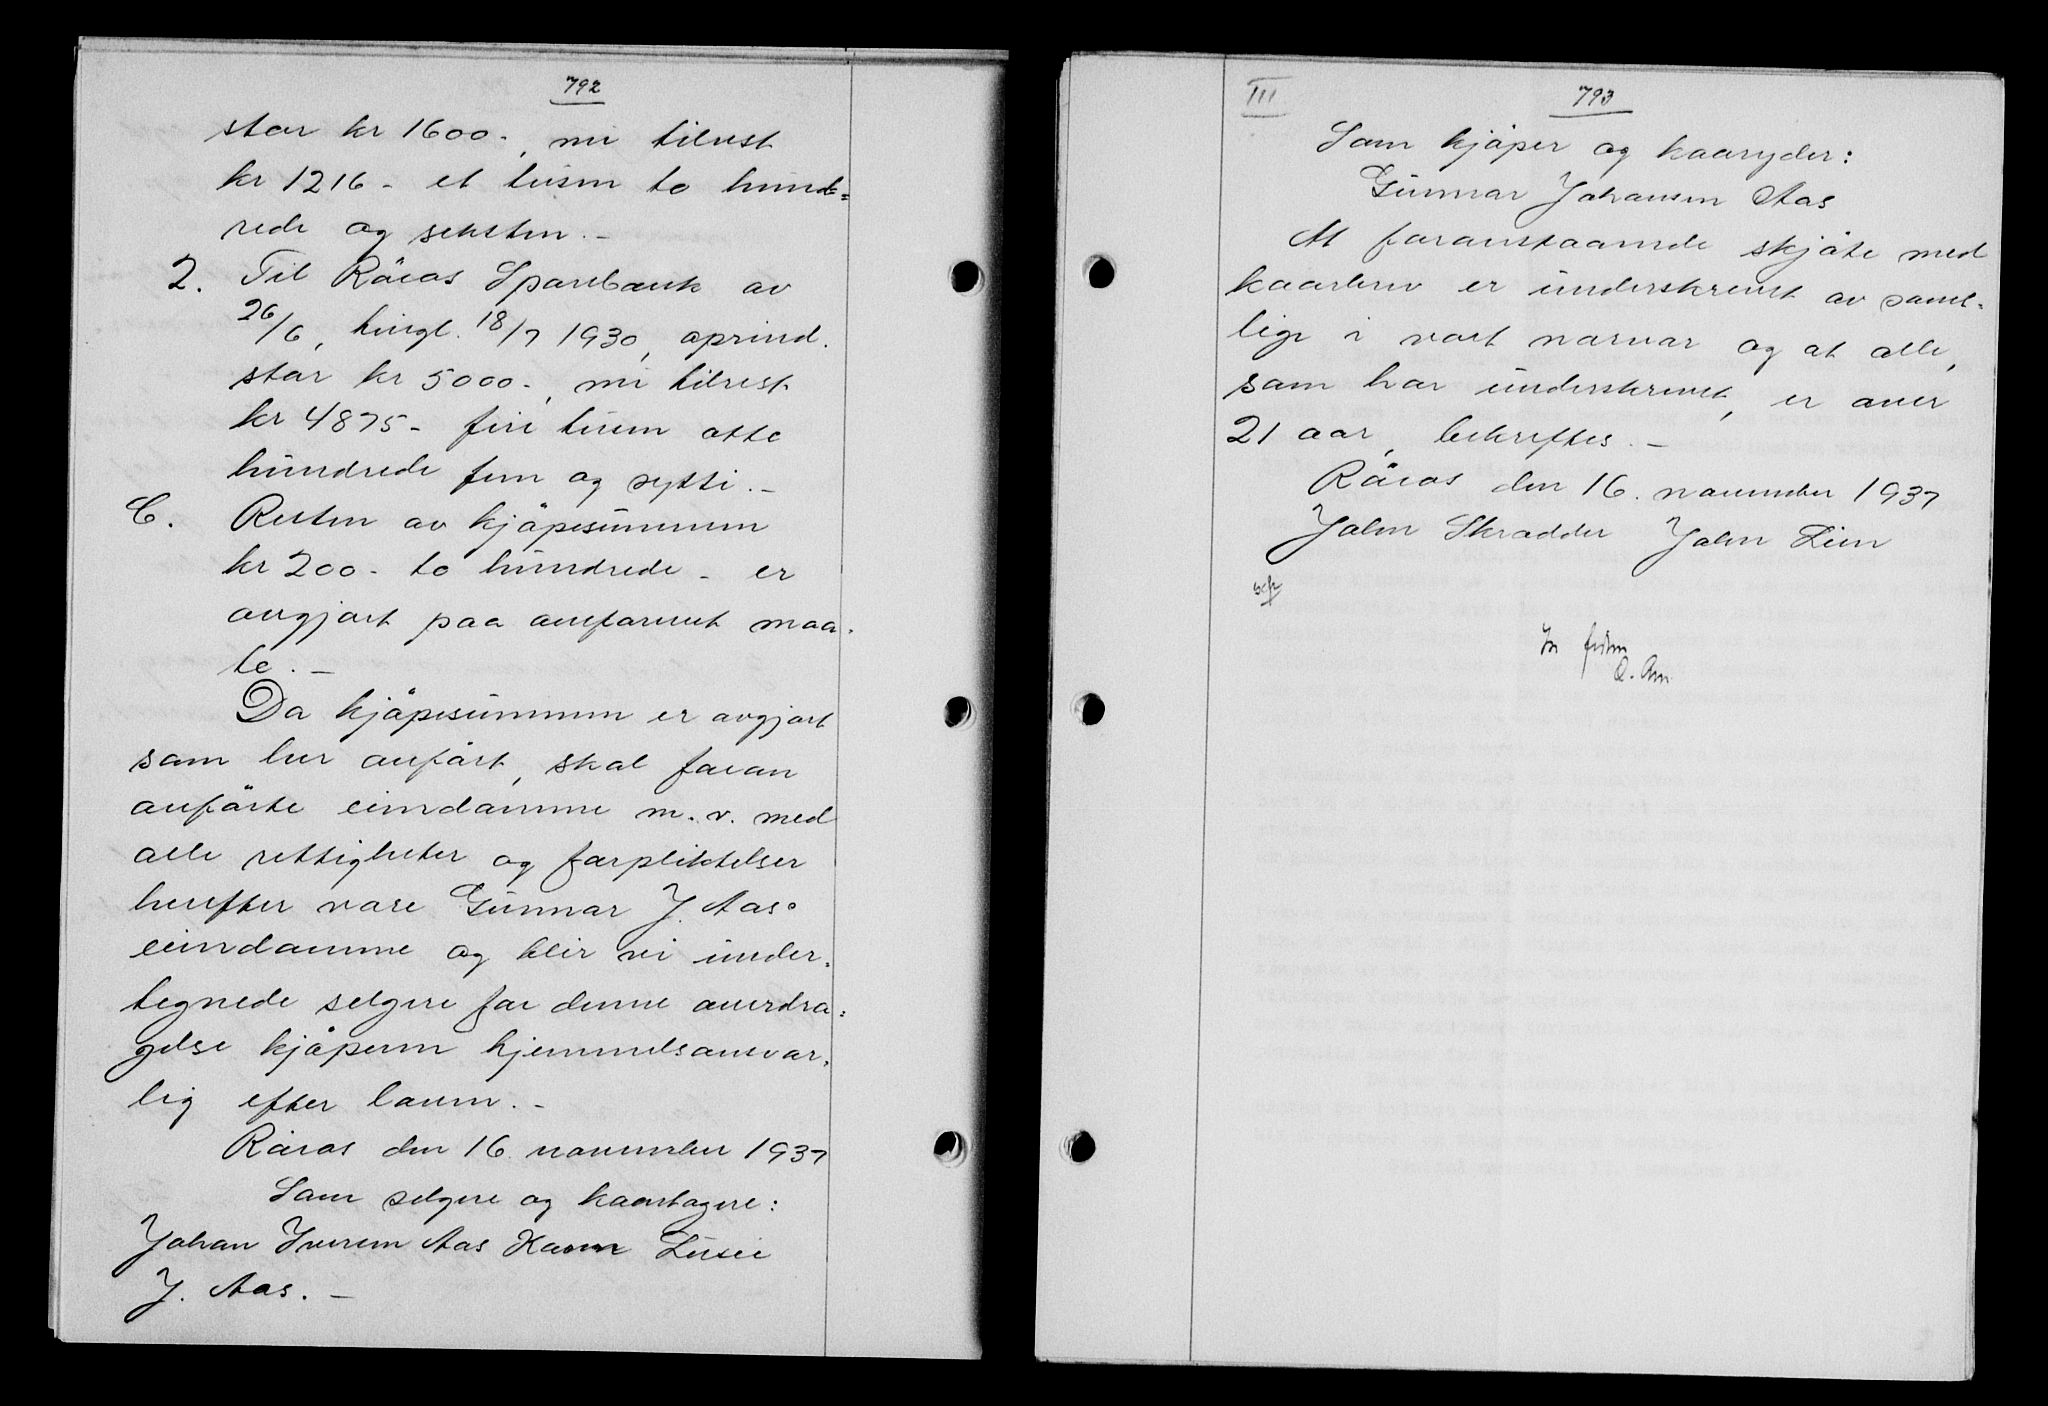 792
stor kr 1600.-, nu tilrest
kr 1216 - et tusen to hund=
rede og seksten.-
2. Til Röros Sparebank av
26/6, tingl. 18/7 1930, oprind.
stor kr 5000.-, nu tilrest
kr 4875 - fire tusen otte
hundrede fem og sytti.-
C. Resten av kjöpesummen
kr 200 - to hundrede - er
avgjort paa anforenet maa-
te.-
Da kjöpesummen er avgjort
som her anfört, skal foran
anförte eiendomme m.v. med
alle rettigheter og forpliktelser
herefter være Gunnar J. Aas'
eiendomme og blir vi under-
tegnede selgere for denne overdra=
gelse kjöperen hjemmelsansvar-
lig efter loven.-
Röros den 16. november 1937
Som selgere og kaartagere:
Johan Iversen Aas Karen Lusie
J. Aas.-
III
793
Som kjöper og kaaryder:
Gunnar Johansen Aas
At foranstaaende skjöte med
kaarbrev er underskrevet av samt-
lige i vort nærvær og at alle,
som har underskrevet, er over
21 aar, bekreftes.-
Röros den 16. november 1937
John Skrædder John Lien
In fidem